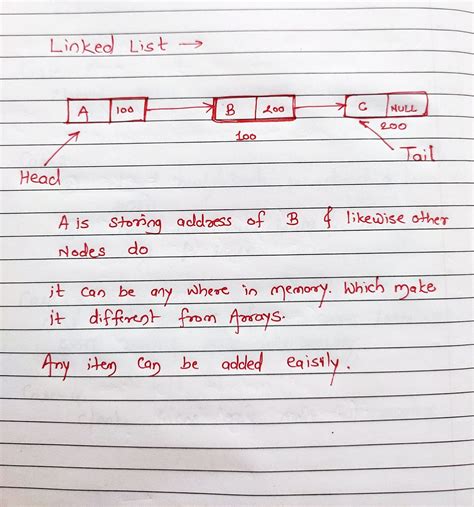 Linked List →
A 100 B 200 C NULL
100 200
Head Tail
A is storing address of B & likewise other
Nodes do
it can be any where in memory. Which make
it different from Arrays.
Any item can be added eaistly.